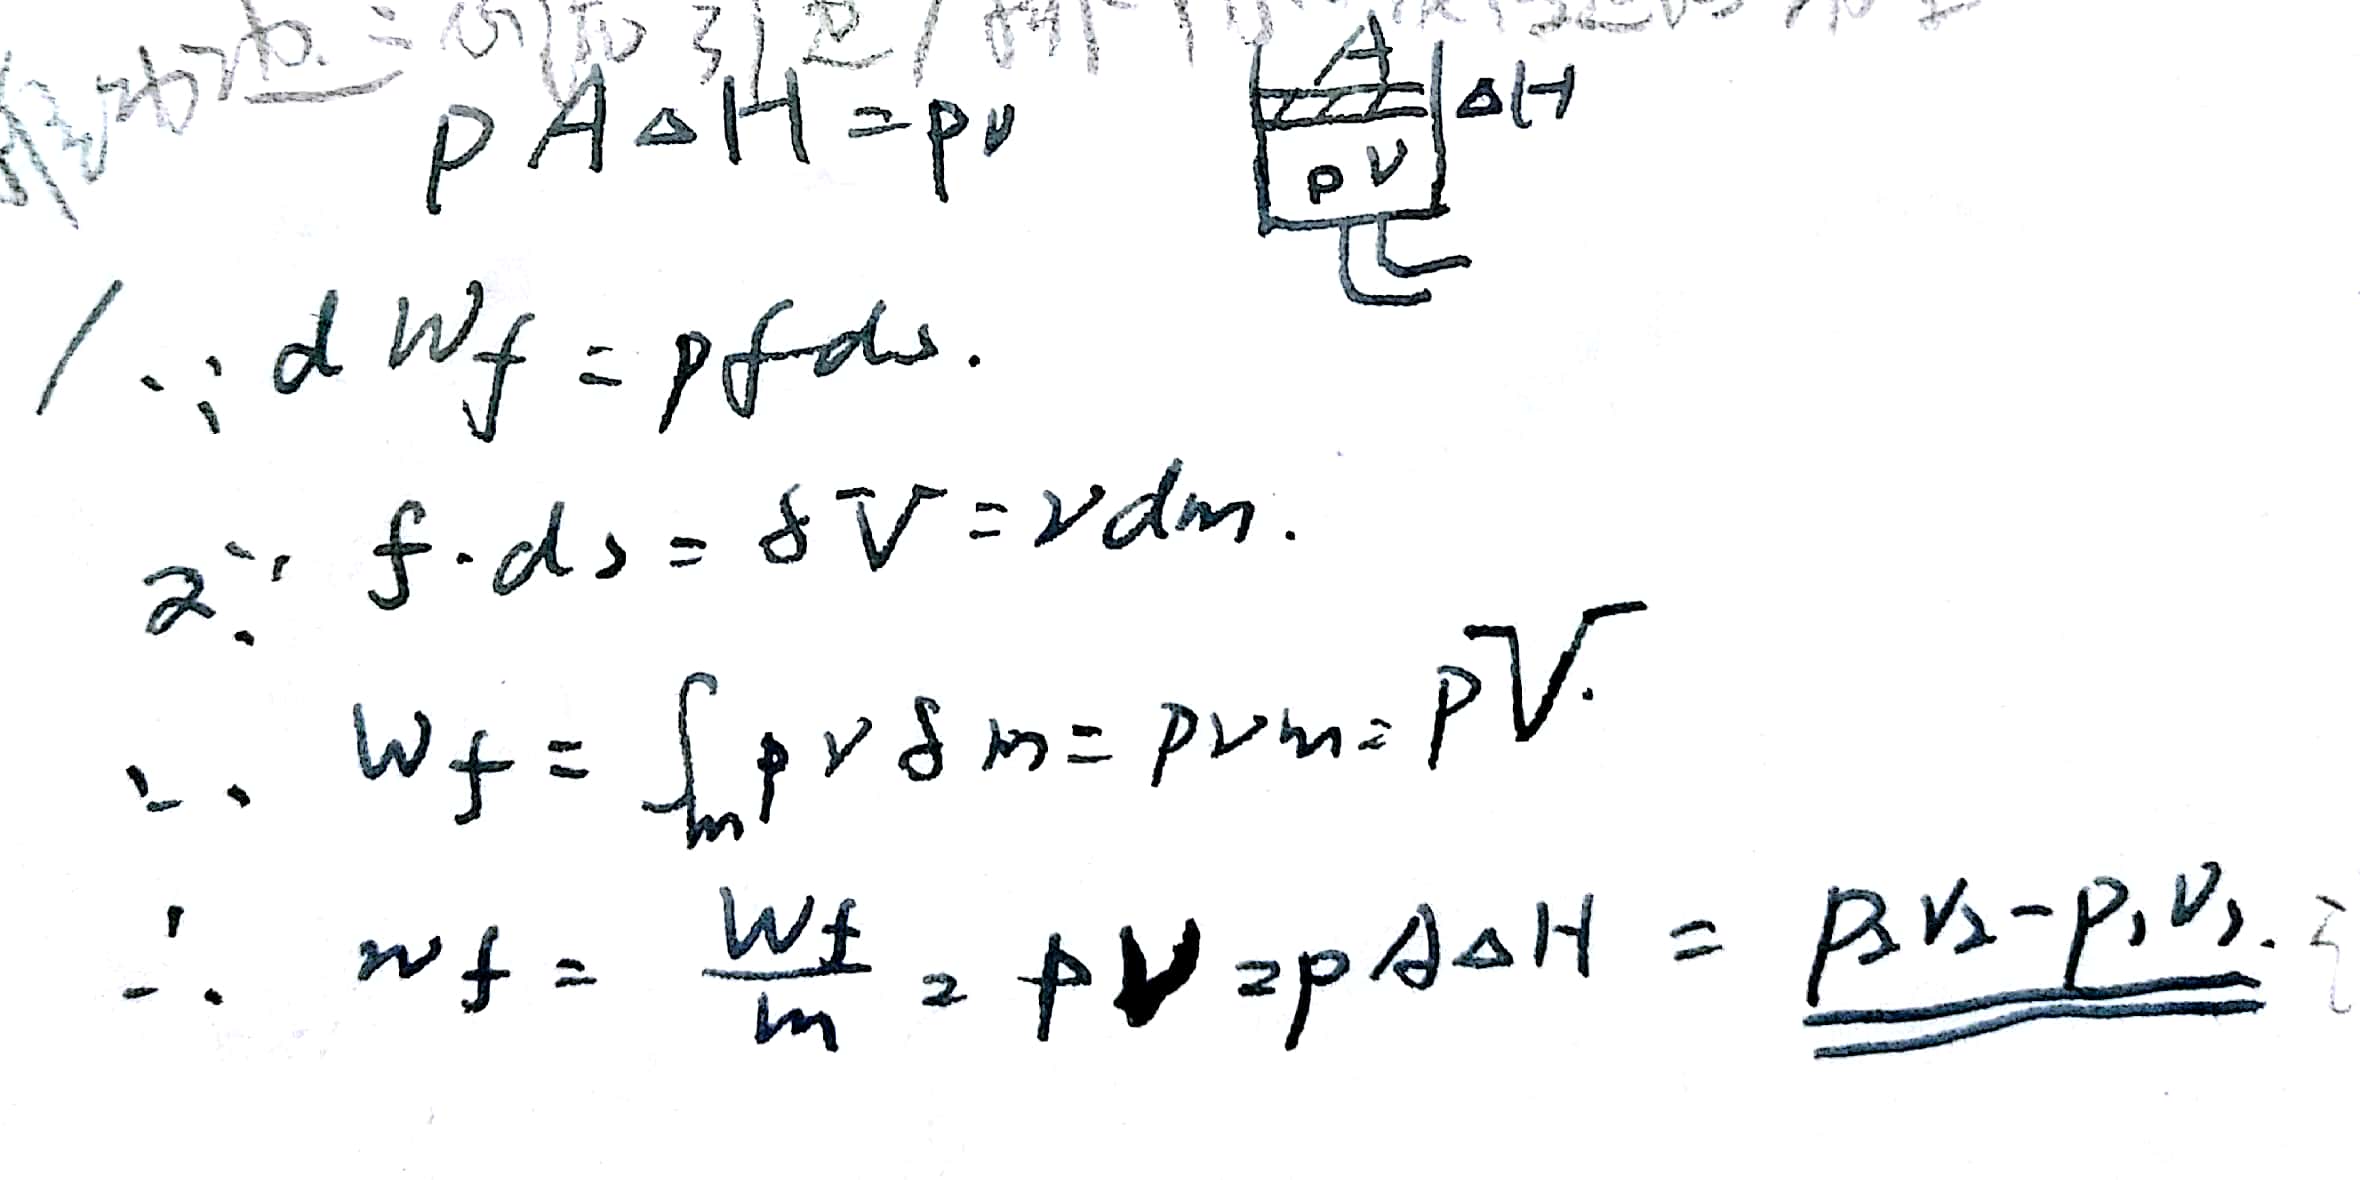 pA△H=pv
A
△H
p v
1 ∵ dWf = pfds.
2 ∵ f·ds = δV = vdm.
∴ Wf = ∫m pvδm = pvm = pV.
∴ wf = Wf/m = pv = pA△H = p₂v₂-p₁v₁.